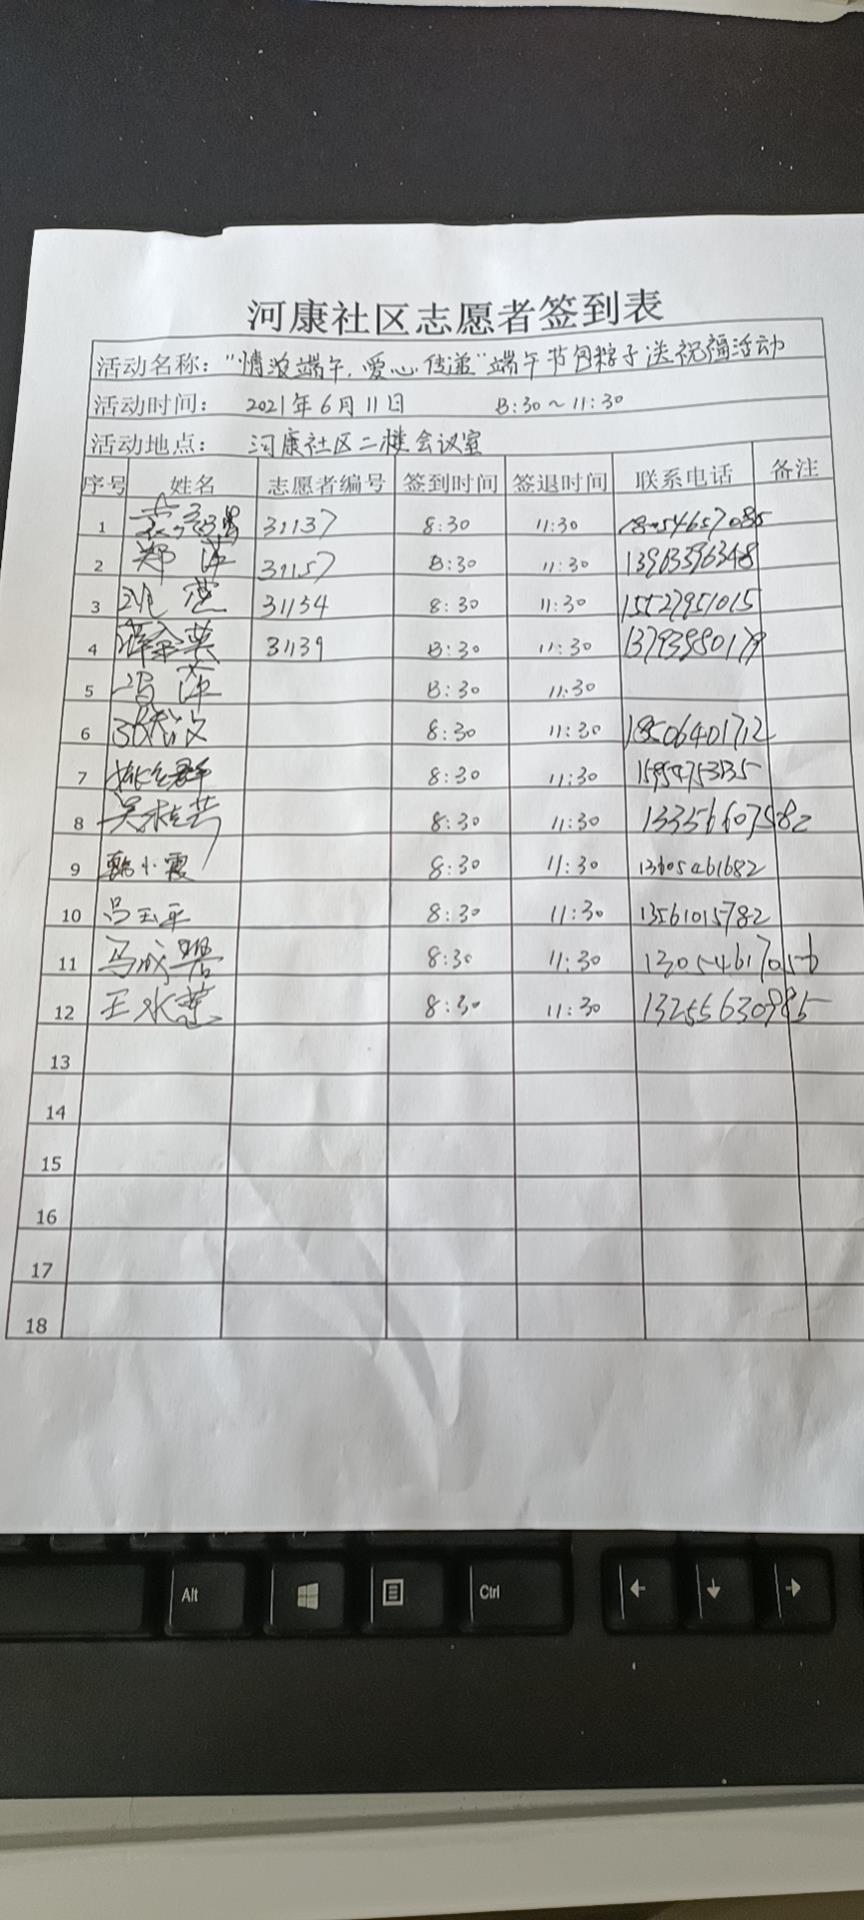 河康社区志愿者签到表
活动名称："情浓端午,爱心传递"端午节包粽子送祝福活动
活动时间： 2021年6月11日 8:30～11:30
活动地点： 河康社区二楼会议室
序号 姓名 志愿者编号 签到时间 签退时间 联系电话 备注
1 31137 8:30 11:30
2 郑萍 31157 8:30 11:30 13963596348
3 31154 8:30 11:30 15527951015
4 薛金英 31139 8:30 11:30 13793980179
5 冯萍 8:30 11:30
6 8:30 11:30 18506401712
7 8:30 11:30 15954753135
8 吴桂芸 8:30 11:30 13356607582
9 韩小霞 8:30 11:30 13605461682
10 吕玉平 8:30 11:30 13561015782
11 马成 8:30 11:30 13054617056
12 王水莲 8:30 11:30 13255630985
13
14
15
16
17
18
Alt
Ctrl